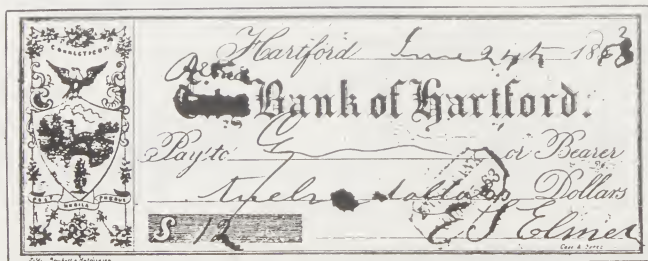 CONNECTICUT.
Hartford June 24th 1863
Aetna
Bank of Hartford.
Pay to or Bearer
twelve dollars Dollars
$ 12
E S Elmer